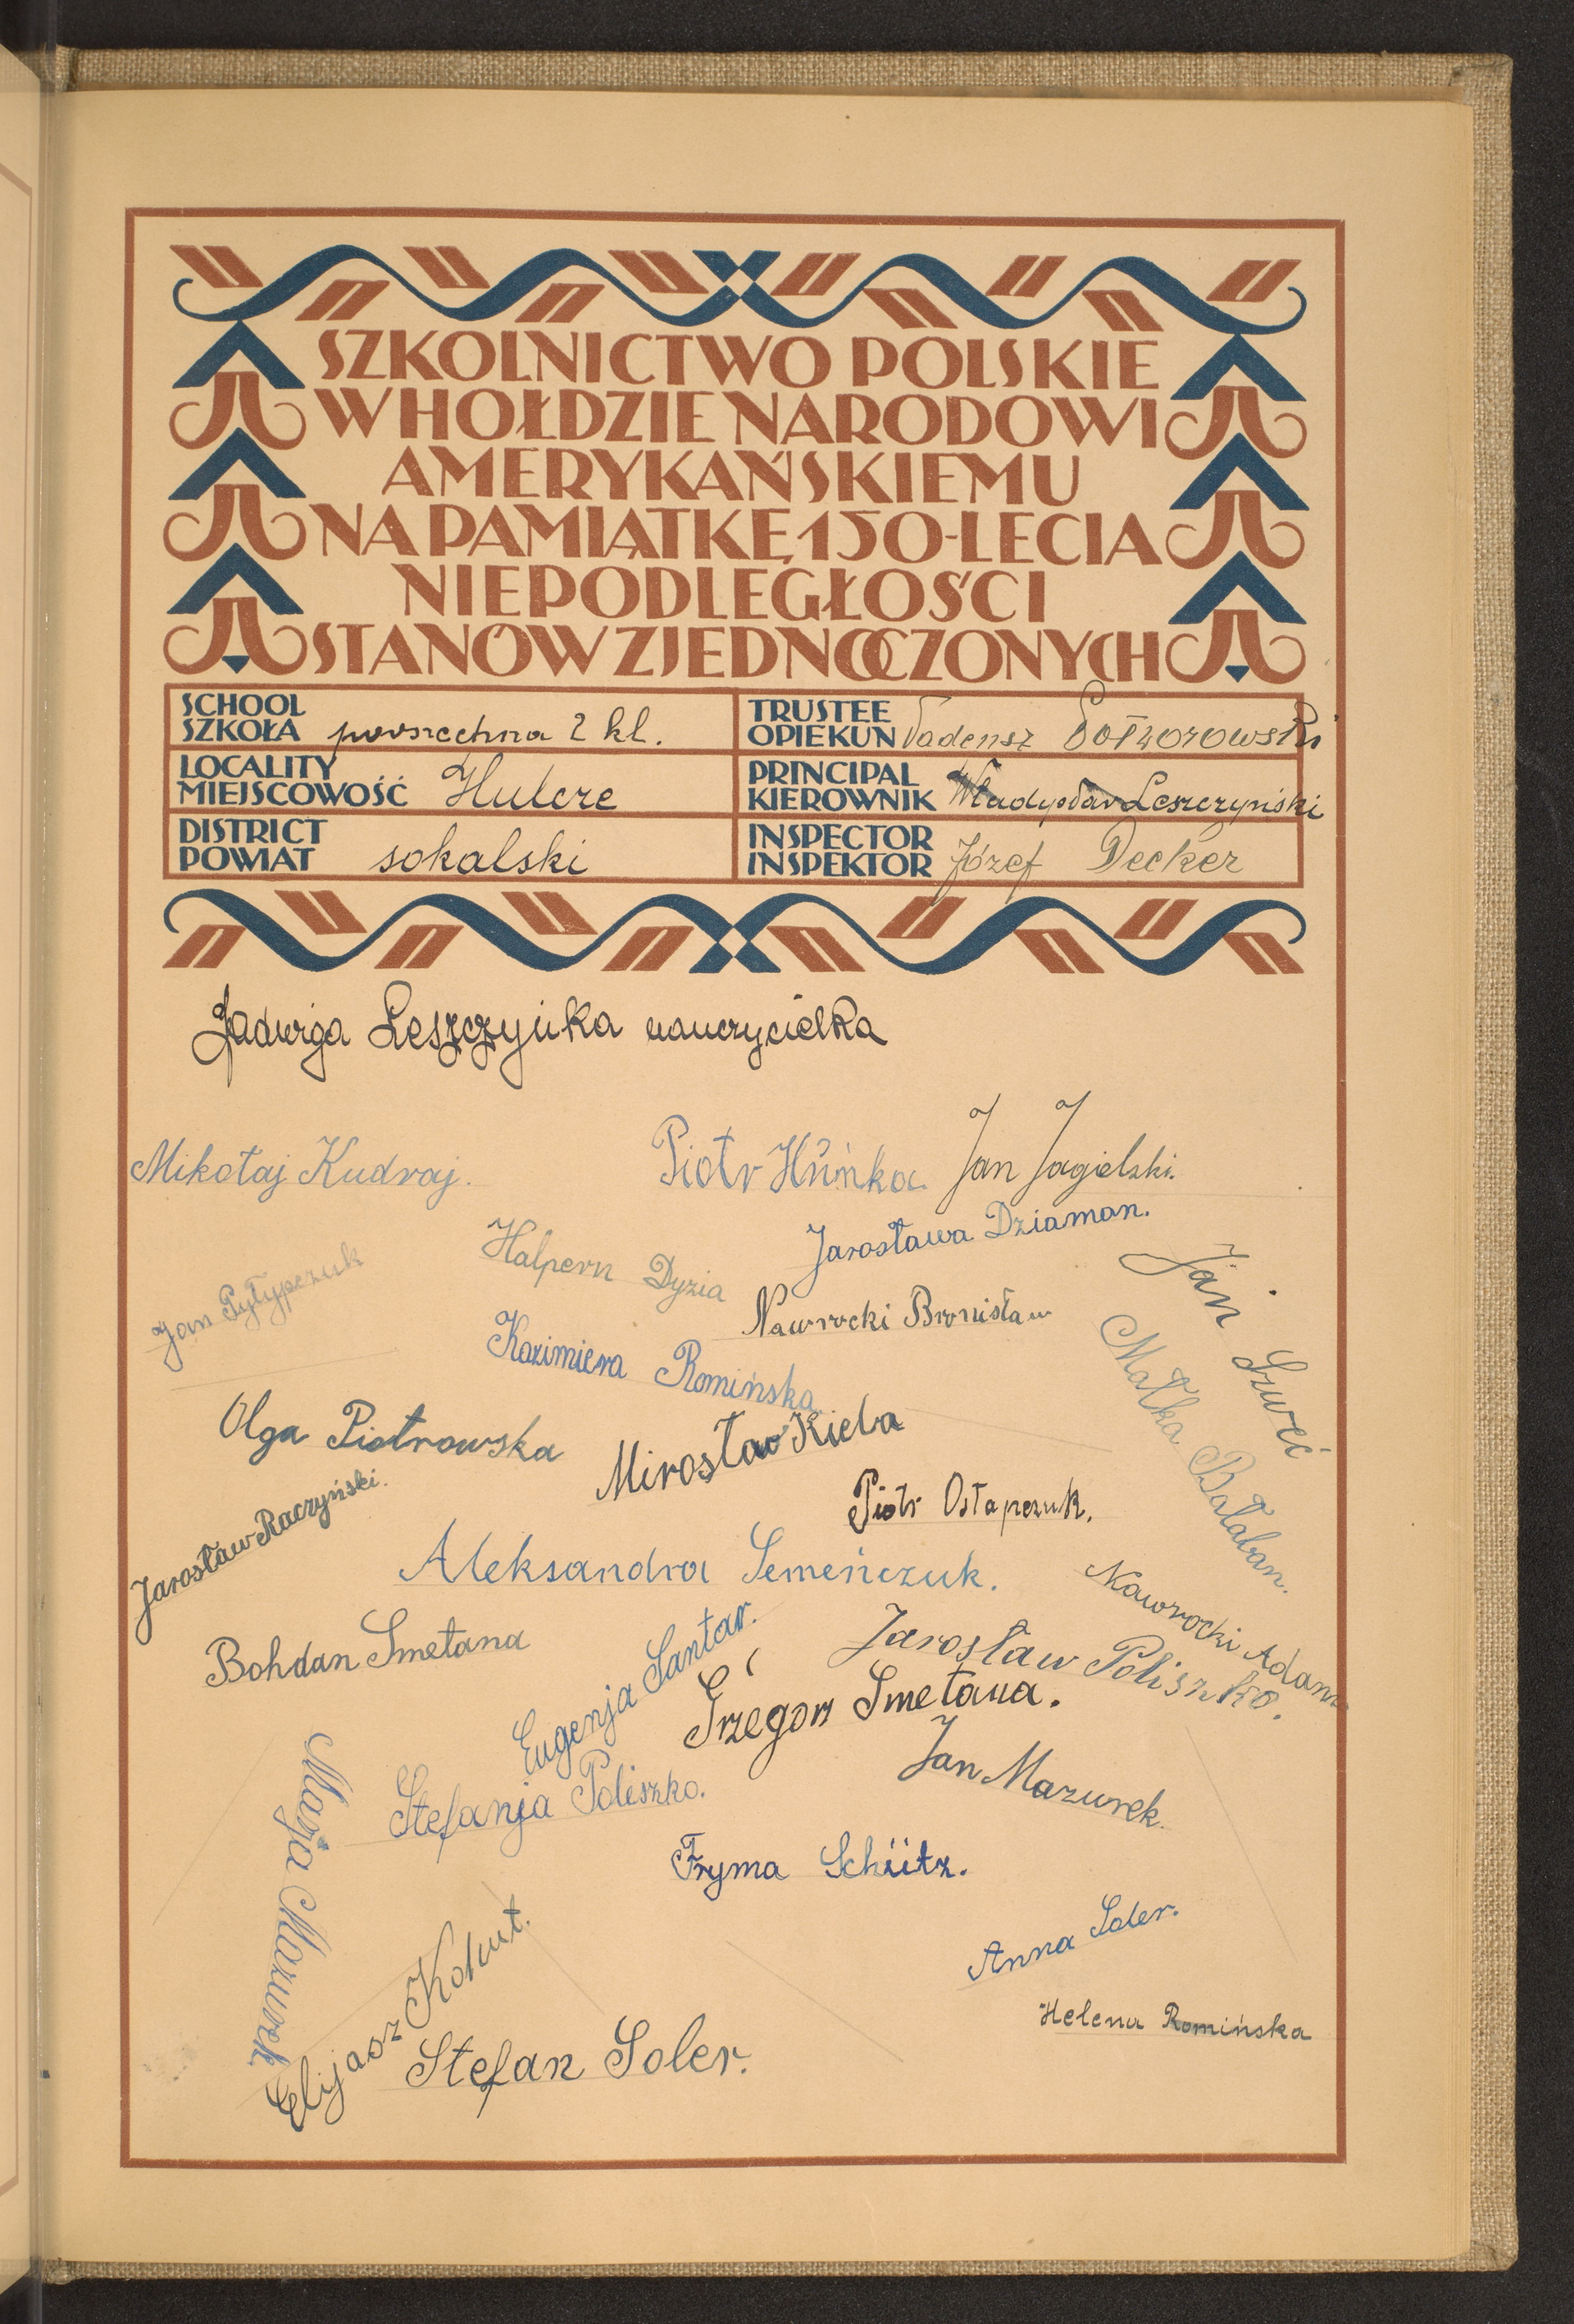 SZKOLNICTWO POLSKIE
W HOŁDZIE NARODOWI
AMERYKAŃSKIEMU
NA PAMIĄTKĘ 150-LECIA
NIEPODLEGŁOŚCI
STANÓW ZJEDNOCZONYCH
SCHOOL
SZKOŁA powszechna 2 kl.
TRUSTEE
OPIEKUN Tadeusz
LOCALITY
MIEJSCOWOŚĆ Hulcze
PRINCIPAL
KIEROWNIK Władysław Leszczyński
DISTRICT
POWIAT sokalski
INSPECTOR
INSPEKTOR Józef Decker
Jadwiga Leszczyńka nauczycielka
Mikołaj Kudraj.
Piotr Hńka
Jan Jagielski.
Jarosława Dziaman.
Halpern Dyzia
Jan Pyłypczuk
Nawrocki Bronisław
Jan Szweć
Małka Bałaban.
Kazimiera Romińska
Olga Piotrowska
Mirosław Kieba
Jarosław Raczyński.
Piotr Ostapczuk.
Aleksandra Semeńczuk.
Nawrocki Adam
Bohdan Smetana
Eugenja Santar.
Jarosław Poliszko.
Grzegorz Smetana.
Jan Mazurek.
Stefanja Poliszko.
Marja Mazurek
Fryma Schütz.
Elijasz Kohut.
Anna Soler.
Helena Romińska
Stefan Soler.